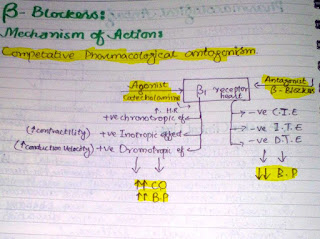 β- Blockers:
Mechanism of Action:
Competative Pharmacological antogonism
Agonist
Catecholamine
β₁ receptor
heart
Antagonist
β-Blockers
↑ H.R
+ve chronotropic ef
-ve C.I.E
(↑contractility) +ve Inotropic effect
-ve I.T.E
(↑conduction velocity) +ve Dromotropic ef
-ve D.T.E
↑↑ CO
↑↑ B.P
↓↓ B.P